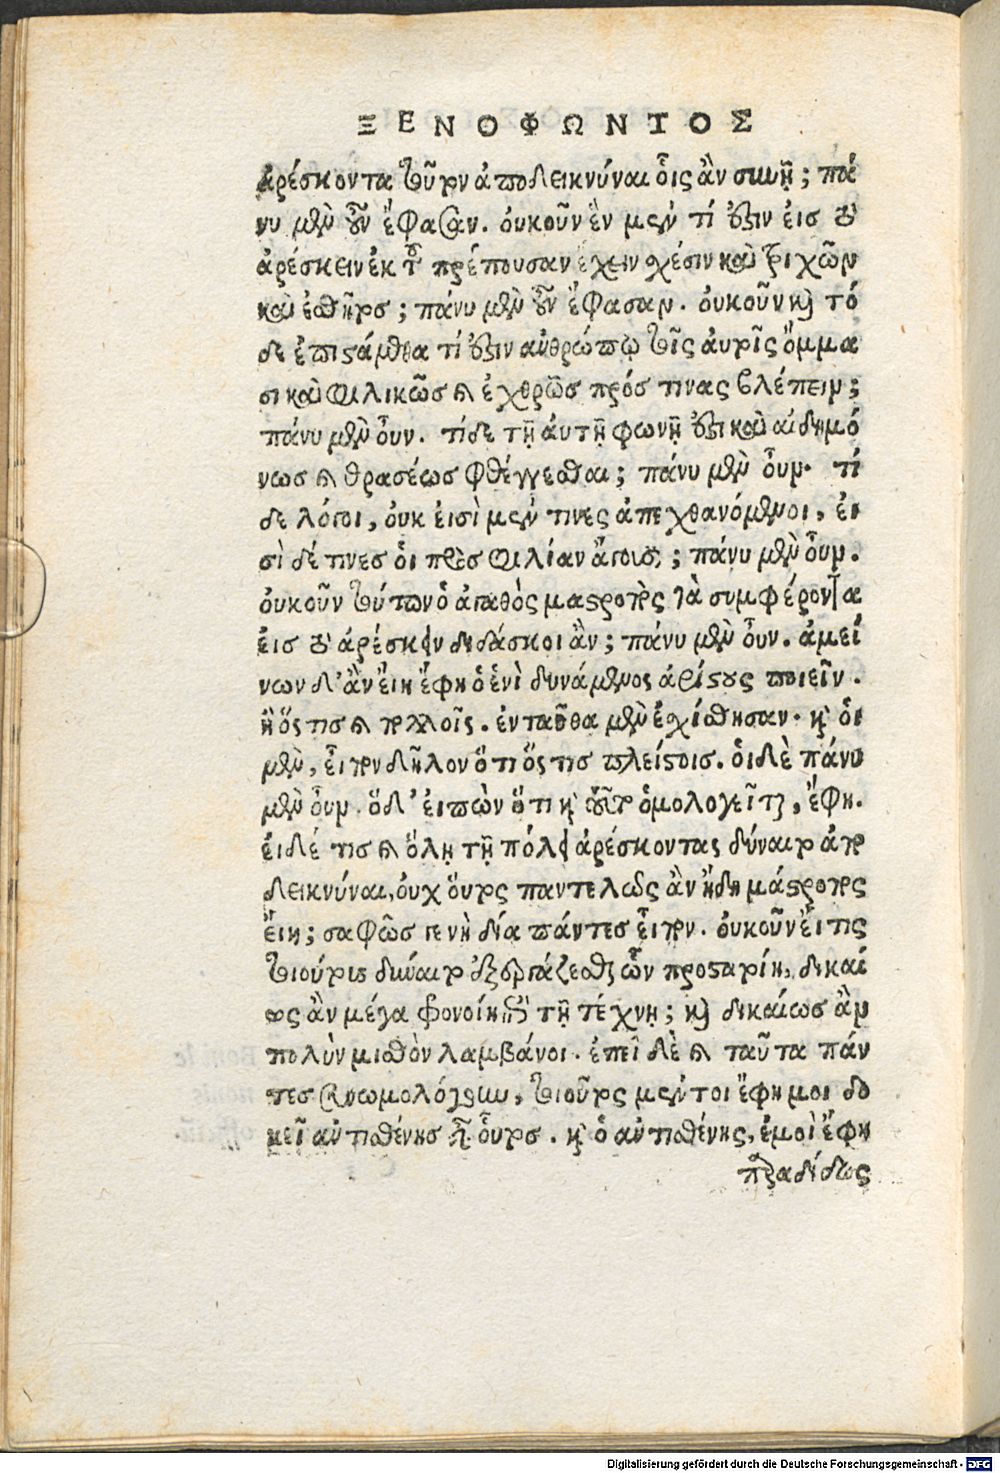 ΞΕΝΟΦΩΝΤΟΣ
ἀρέσκοντα τοῦτον ἀποδεικνύναι οἷς ἂν συνῇ; πά
νυ μὲν οὖν ἔφασαν. οὐκοῦν ἓν μέν τί ἐστιν εἰς τὸ
ἀρέσκειν ἐκ τοῦ πρέπουσαν ἔχειν σχέσιν καὶ τριχῶν
καὶ ἐσθῆτος; πάνυ μὲν οὖν ἔφασαν. οὐκοῦν καὶ τό
δε ἐπιστάμεθα τί ἐστιν ἀνθρώπῳ τοῖς αὐτοῖς ὄμμα
σι καὶ φιλικῶς καὶ ἐχθρῶς πρός τινας βλέπειν;
πάνυ μὲν οὖν. τί δε τῇ ἀυτῇ φωνῇ ἔστι καὶ αἰδημό
νως καὶ θρασέως φθέγγεσθαι; πάνυ μὲν οὖν. τί
δε λόγοι, οὐκ εἰσὶ μέν τινες ἀπεχθανόμενοι, εἰ
σὶ δέ τινες οἳ πρὸς φιλίαν ἄγουσι; πάνυ μὲν οὖν.
οὐκοῦν τούτων ὁ ἀγαθὸς μαστροπὸς τὰ συμφέροντα
εἰς τὸ ἀρέσκειν διδάσκοι ἂν; πάνυ μὲν οὖν. ἀμεί
νων δ' ἂν εἴη ἔφη ὁ ἑνὶ δυνάμενος ἀρίστους ποιεῖν.
ἢ ὅστις καὶ πολλοῖς. ἐνταῦθα μὲν ἐσχίσθησαν. καὶ οἱ
μὲν, εἶπον δῆλον ὅτι ὅστις πλείστοις. οἱ δὲ πάνυ
μὲν οὖν. ὁ δ' εἰπὼν ὅτι καὶ τοῦτο ὁμολογεῖται, ἔφη.
εἰ δέ τις καὶ ὅλῃ τῇ πόλει ἀρέσκοντας δύναιτο ἀπο
δεικνύναι, οὐχ οὗτος παντελῶς ἂν ἤδη μάστροπος
εἴη; σαφῶς γε νὴ δία πάντες εἶπον. οὐκοῦν εἴ τις
τοιούτους δύναιτο ἐξεργάζεσθαι ὧν προστατοίη, δικαί
ως ἂν μέγα φρονοίη ἐπὶ τῇ τέχνῃ; καὶ δικαίως ἂν
πολὺν μισθὸν λαμβάνοι. ἐπεὶ δὲ καὶ ταῦτα πάν
τες συνωμολόγουν, τοιοῦτος μέν τοι ἔφη μοι δο
κεῖ ἀντισθένης εἶναι οὗτος. καὶ ὁ ἀντισθένης, ἐμοὶ ἔφη
παραδίδως
Digitalisierung gefördert durch die Deutsche Forschungsgemeinschaft - DFG